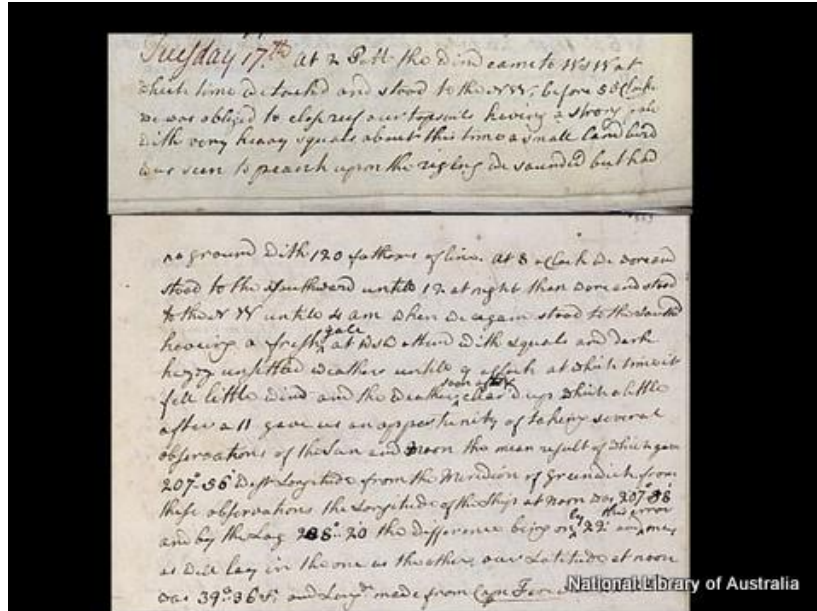 Tuesday 17th at 2 PM the Wind came to WSW at
which time we tack'd and stood to the NW, before 5 oClock
we was obliged to close reef our topsails having a strong gale
with very heavy squals about this time a small land bird
was seen to pearch upon the rigging we sounded but had
no ground with 120 fathoms of line. At 8 oClock we wore and
stood to the Southward untill 12 at night than wore and stood
to the NW untill 4 am when we again stood to the Southd
having a fresh gale at WSW attend with squals and dark
hazey unsettled weather untill 9 oClock at which time it
fell little wind and the weather soon after clear'd up which a little
after a 11 gave us an oppertunity of taking several
observations of the Sun and Moon the mean result of which gave
207°.56' West Longitude from the Meridion of Greenwich from
these observations the Longitude of the Ship at noon was 207°.58'
and by the Log 208°.20' the difference being only 22' and this error may
as well lay in the one as the other, our Latitude at noon
was 39°.36' S. and Longd made from Cape
National Library of Australia